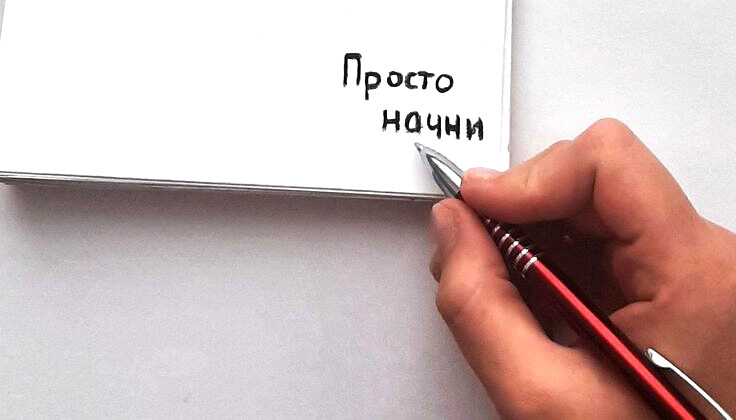 Просто
начни